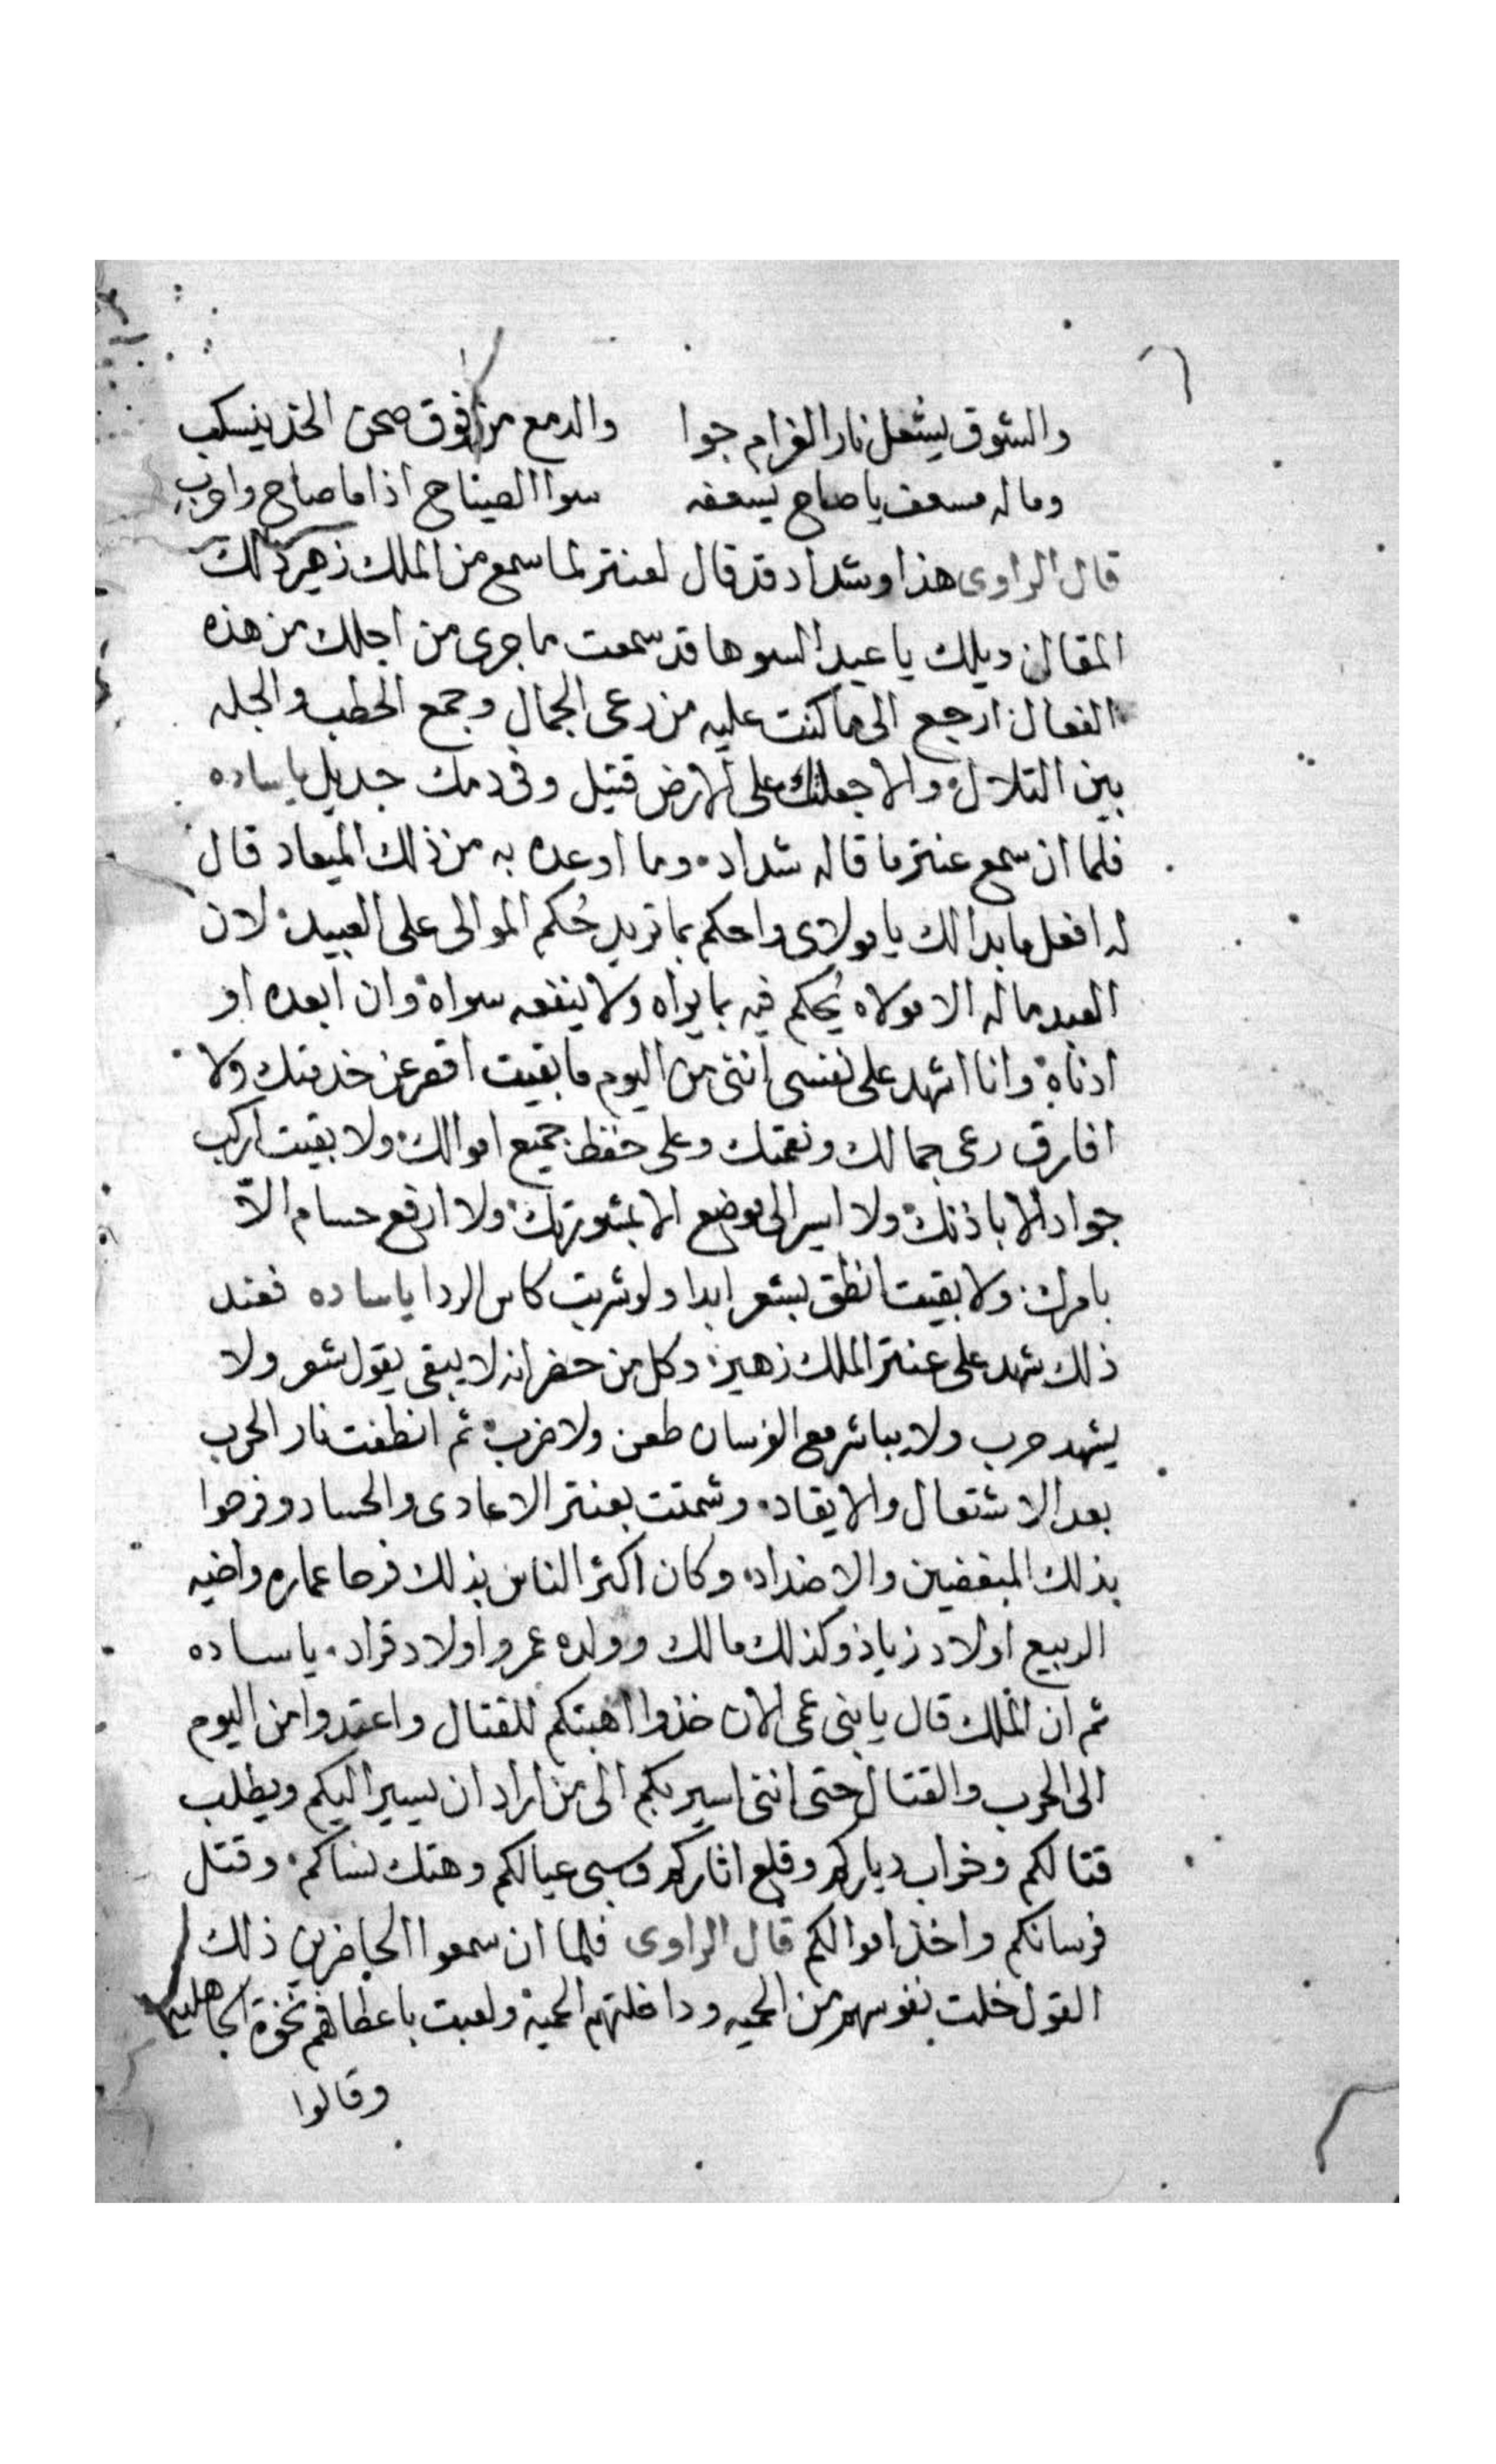 والشوق يشعل نار الغرام جوا والدمع من فوق صحن الخد ينسكب
وماله مسعف يا صاح يسعفه سوا الصياح اذا ما صاح واحرب
قال الراوى هذا وشداد قد قال لعنتر لما سمع من الملك زهير ذلك
المقال ويلك يا عبد السوها قد سمعت ما جرى من اجلك من هذه
الفعال ارجع الى ما كنت عليه من رعى الجمال وجمع الحطب والجله
بين التلال والا جعلتك على الارض قتيل وفى دمك جديل يا ساده
فلما ان سمع عنتر ما قاله شداد وما اوعده به من ذلك الميعاد قال
له افعل ما بدا لك يا مولاى واحكم بما تريد حُكم الموالى على العبيد لان
العبد ماله الا مولاه يُحكم فيه بما يراه ولا ينفعه سواه وان ابعده او
ادناه وانا اشهد على نفسى اننى من اليوم ما بقيت اقصر عن خدمتك ولا
افارق رعى جمالك ونعمتك وعلى حفظ جميع اموالك ولا بقيت اركب
جواد الا باذنك ولا اسير الى موضع الا بمشورتك ولا ارفع حسام الاّ
بامرك ولا بقيت انطق بشعر ابدا ولو شربت كاس الردا يا ساده فعند
ذلك شهد على عنتر الملك زهير وكل من حضر انه لا يبقى يقول شعر ولا
يشهد حرب ولا يباشر مع الفرسان طعن ولا ضرب ثم انطفت نار الحرب
بعد الاشتعال والايقاد وشمتت بعنتر الاعادى والحساد وفرحوا
بذلك المبغضين والاضداد وكان اكثر الناس بذلك فرحا عماره واخيه
الربيع اولاد زياد وكذلك مالك وولده عمرو اولاد قراد يا ساده
ثم ان الملك قال يا بنى عمى الان خذوا اهبتكم للقتال واعتدوا من اليوم
الى الحرب والقتال حتى اننى اسير بكم الى من اراد ان يسير اليكم ويطلب
قتالكم وخراب دياركم وقلع اثاركم وسبى عيالكم وهتك نساكم وقتل
فرسانكم واخذ اموالكم قال الراوى فلما ان سمعوا الحاضرين ذلك
القول خلت نفوسهم من الحيه وداخلتهم الحميه ولعبت باعطافهم نخوة الجاهليه
وقالوا